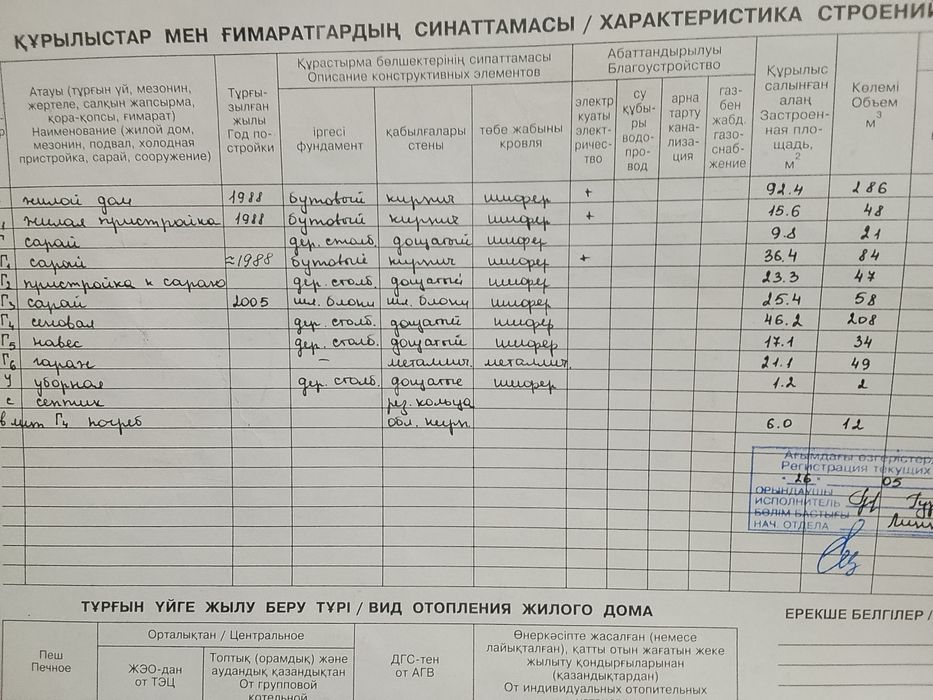 ҚҰРЫЛЫСТАР МЕН ҒИМАРАТГАРДЫҢ СИНАТТАМАСЫ / ХАРАКТЕРИСТИКА СТРОЕНИЙ
Атауы (тұрғын үй, мезонин,
жертеле, салқын жапсырма,
қора-қопсы, ғимарат)
Наименование (жилой дом,
мезонин, подвал, холодная
пристройка, сарай, сооружение)
Тұрғы-
зылған
жылы
Год по-
стройки
Құрастырма бөлшектерінің сипаттамасы
Описание конструктивных элементов
іргесі
фундамент
қабылғалары
стены
төбе жабыны
кровля
Абаттандырылуы
Благоустройство
электр
қуаты
элект-
ричес-
тво
су
құбы-
ры
водо-
про-
вод
арна
тарту
кана-
лиза-
ция
газ-
бен
жабд.
газо-
снаб-
жение
Құрылыс
салынған
алаң
Застроен-
ная пло-
щадь,
м²
Көлемі
Объем
м³
жилой дом 1988 бутовый кирпич шифер + 92.4 286
жилая пристройка 1988 бутовый кирпич шифер + 15.6 48
Г сарай дер. столб. дощатый шифер 9.8 21
Г₁ сарай ≈1988 бутовый кирпич шифер + 36.4 84
Г₂ пристройка к сараю дер. столб. дощатый шифер 23.3 47
Г₃ сарай 2005 шл. блоки шл. блоки шифер 25.4 58
Г₄ сеновал дер. столб. дощатый шифер 46.2 208
Г₅ навес дер. столб. дощатый шифер 17.1 34
Г₆ гараж – металлич. металлич. 21.1 49
У уборная дер. столб. дощатые шифер 1.2 2
с септик рез. кольца
в лит Г₄ погреб обл. кирп. 6.0 12
Ағымдағы өзгерістер
Регистрация текущих
"26" 05
ОРЫНДАУШЫ
ИСПОЛНИТЕЛЬ
БӨЛІМ БАСТЫҒЫ
НАЧ. ОТДЕЛА
ТҰРҒЫН ҮЙГЕ ЖЫЛУ БЕРУ ТҮРІ / ВИД ОТОПЛЕНИЯ ЖИЛОГО ДОМА
ЕРЕКШЕ БЕЛГІЛЕР /
Пеш
Печное
Орталықтан / Центральное
ЖЭО-дан
от ТЭЦ
Топтық (орамдық) және
аудандық қазандықтан
От групповой
котельной
ДГС-тен
от АГВ
Өнеркәсіпте жасалған (немесе
лайықталған), қатты отын жағатын жеке
жылыту қондырғыларынан
(қазандықтардан)
От индивидуальных отопительных